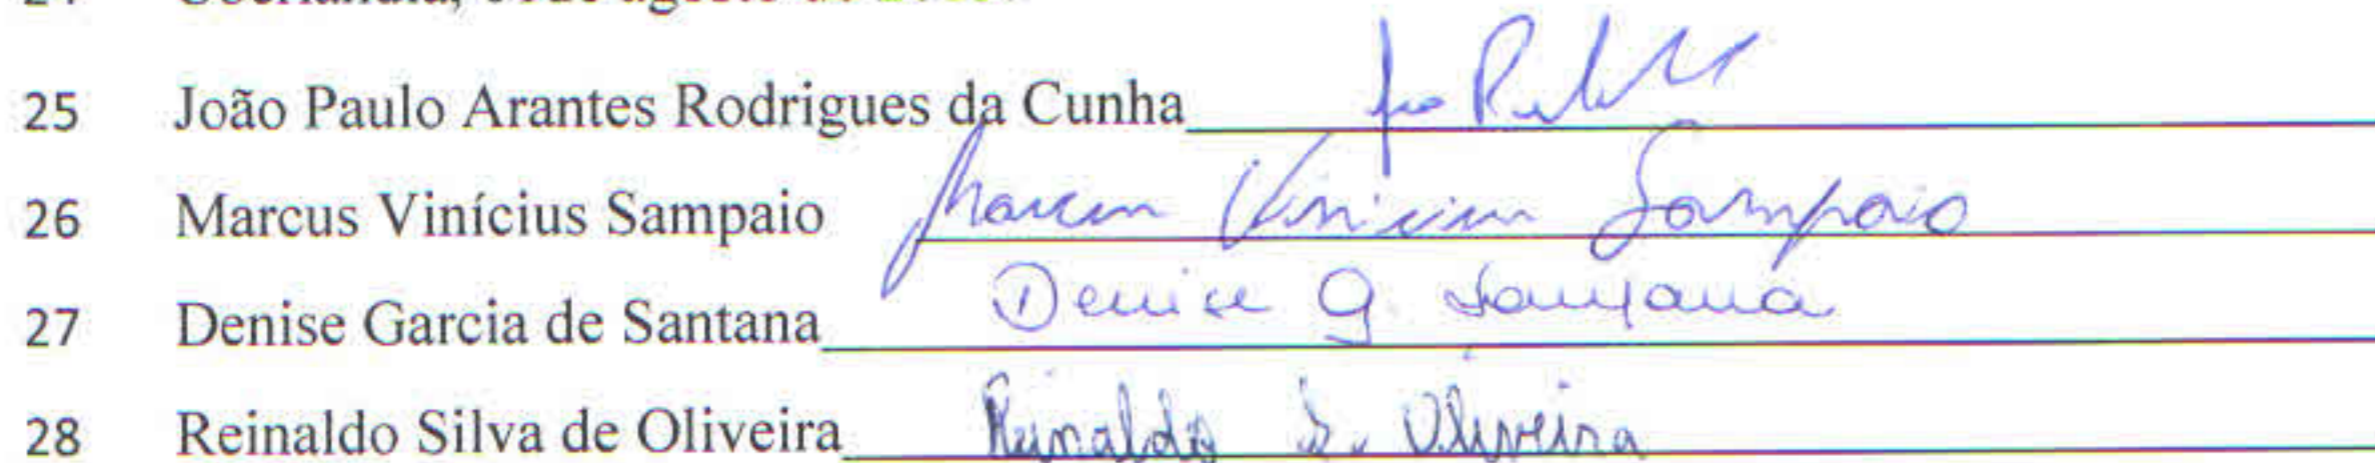 25 João Paulo Arantes Rodrigues da Cunha
26 Marcus Vinícius Sampaio Marcus Vinicius Sampaio
27 Denise Garcia de Santana Denise G. Santana
28 Reinaldo Silva de Oliveira Reinaldo S. Oliveira